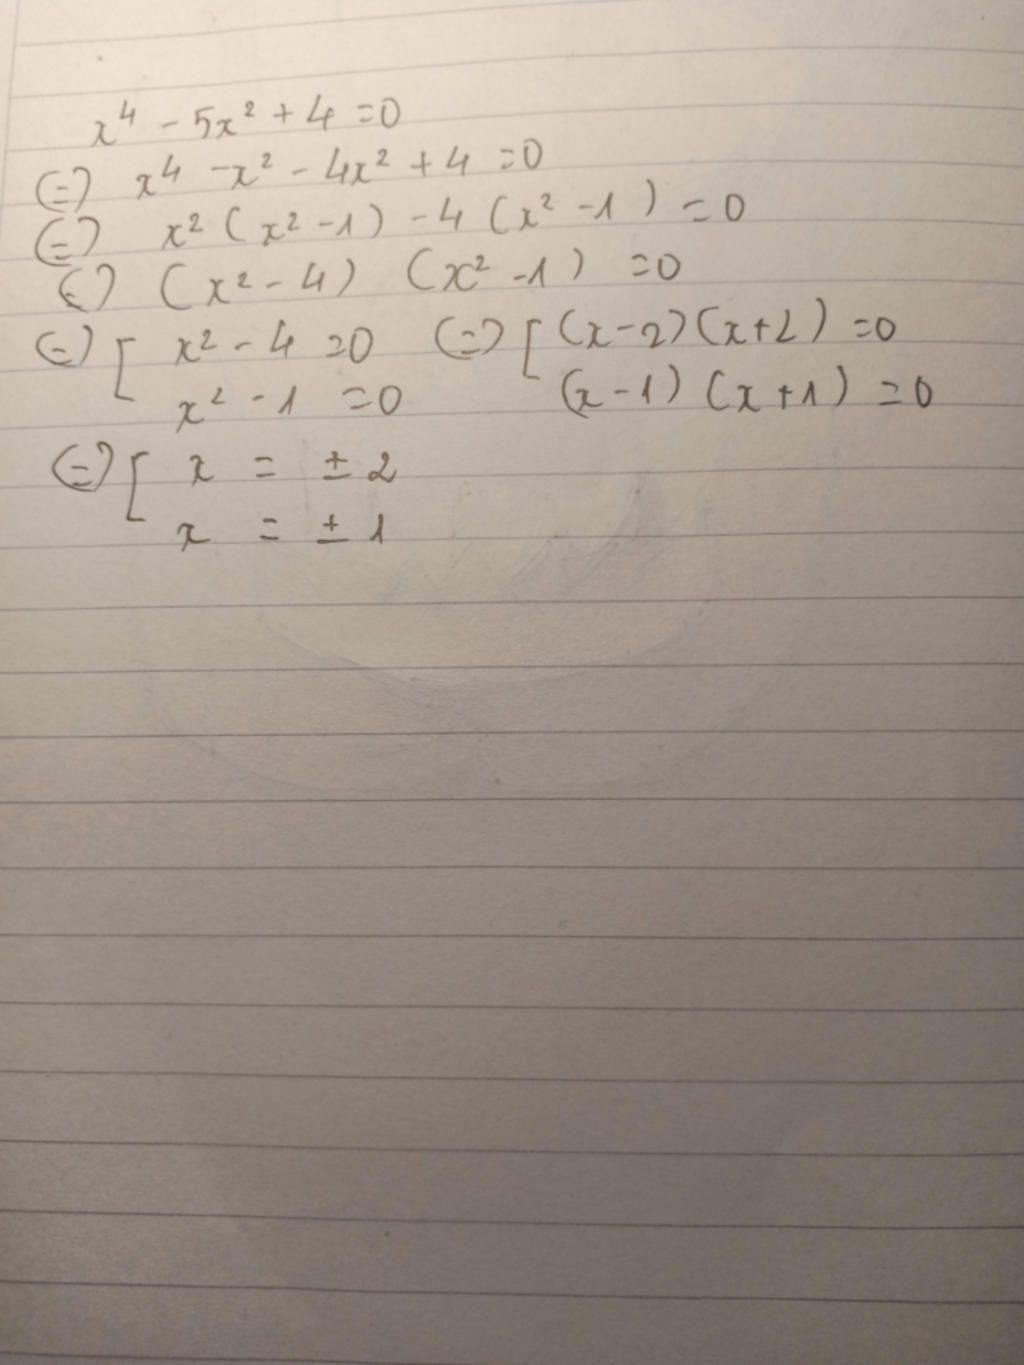 x⁴ - 5x² + 4 = 0
(=) x⁴ - x² - 4x² + 4 = 0
(=) x² (x² - 1) - 4 (x² - 1) = 0
(=) (x² - 4) (x² - 1) = 0
(=) [ x² - 4 = 0 (=) [ (x - 2)(x + 2) = 0
x² - 1 = 0 (x - 1) (x + 1) = 0
(=) [ x = ± 2
x = ± 1